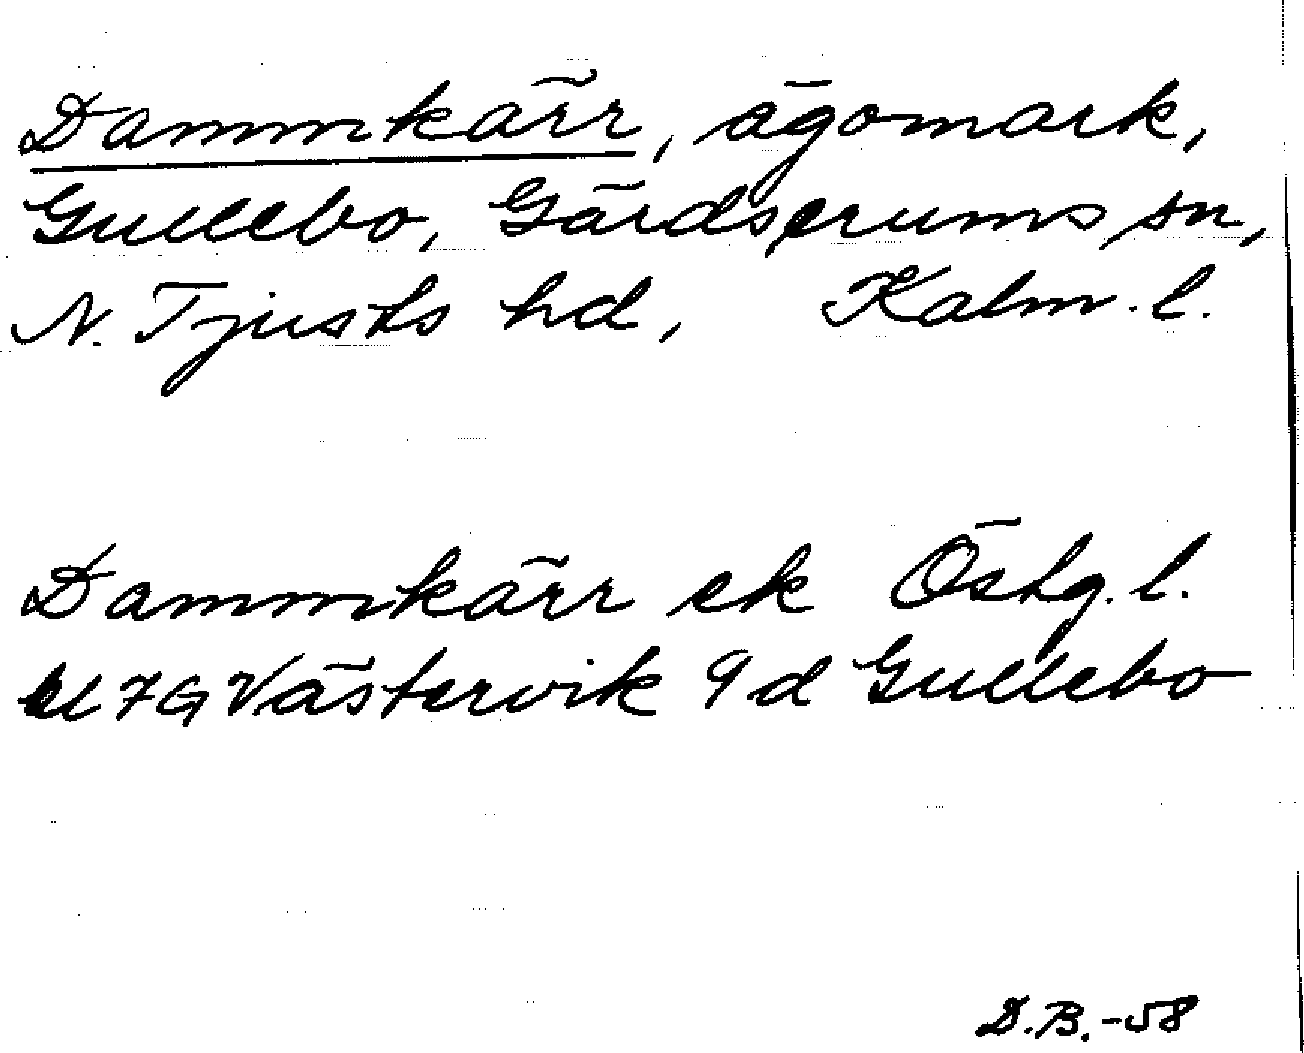 Dammkärr, ägomark,
Gullebo, Gärdserums sn,
N. Tjusts hd, Kalm. l.
Dammkärr ek Östg. l.
7G Västervik 9d Gullebo
D.B.-58